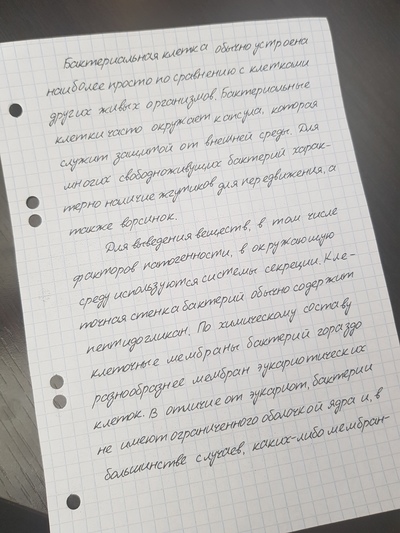 Бактериальная клетка обычно устроена
наиболее просто по сравнению с клетками
других живых организмов. Бактериальные
клетки часто окружает капсула, которая
служит защитой от внешней среды. Для
многих свободноживущих бактерий харак-
терно наличие жгутиков для передвижения, а
также ворсинок.
Для выведения веществ, в том числе
факторов патогенности, в окружающую
среду используются системы секреции. Кле-
точная стенка бактерий обычно содержит
пептидогликан. По химическому составу
клеточные мембраны бактерий гораздо
разнообразнее мембран эукариотических
клеток. В отличие от эукариот, бактерии
не имеют ограниченного оболочкой ядра и, в
большинстве случаев, каких-либо мембран-